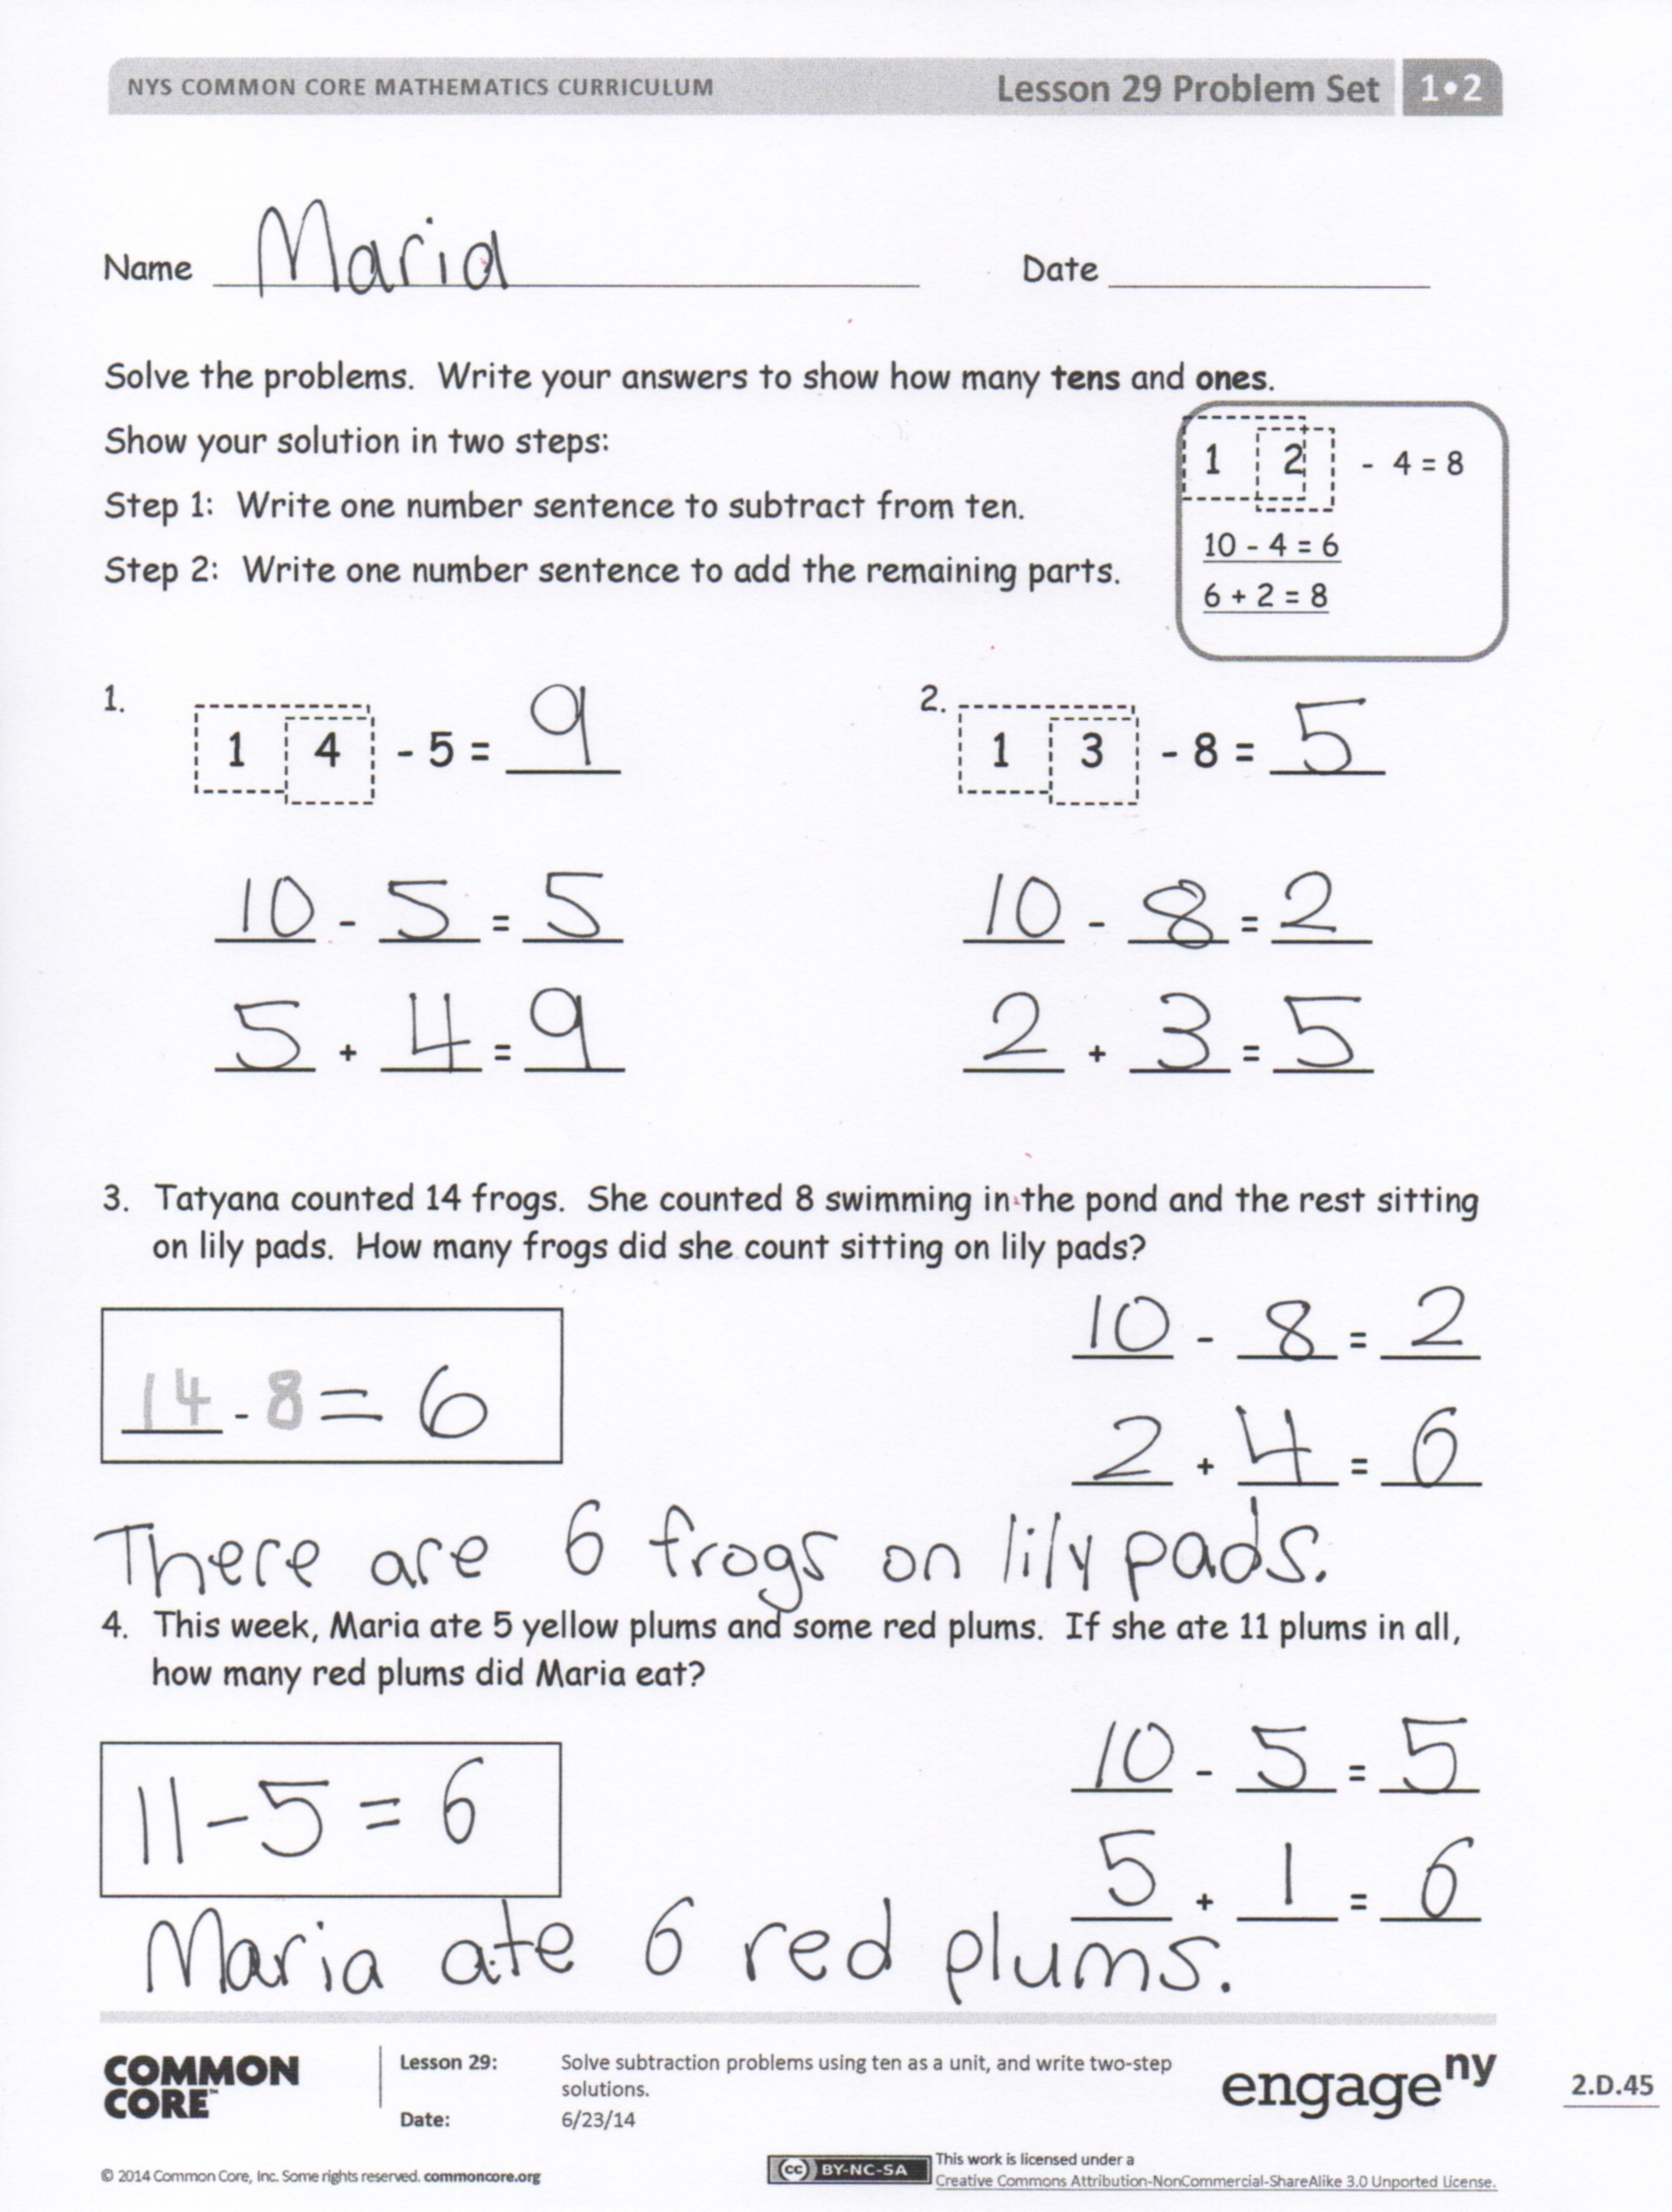 NYS COMMON CORE MATHEMATICS CURRICULUM Lesson 29 Problem Set 1•2
Name Maria Date
Solve the problems. Write your answers to show how many tens and ones.
Show your solution in two steps:
Step 1: Write one number sentence to subtract from ten.
Step 2: Write one number sentence to add the remaining parts.
1 2 - 4 = 8
10 - 4 = 6
6 + 2 = 8
1. 1 4 - 5 = 9
10 - 5 = 5
5 + 4 = 9
2. 1 3 - 8 = 5
10 - 8 = 2
2 + 3 = 5
3. Tatyana counted 14 frogs. She counted 8 swimming in the pond and the rest sitting
on lily pads. How many frogs did she count sitting on lily pads?
14 - 8 = 6
10 - 8 = 2
2 + 4 = 6
There are 6 frogs on lily pads.
4. This week, Maria ate 5 yellow plums and some red plums. If she ate 11 plums in all,
how many red plums did Maria eat?
11 - 5 = 6
10 - 5 = 5
5 + 1 = 6
Maria ate 6 red plums.
COMMON
CORE™
Lesson 29: Solve subtraction problems using ten as a unit, and write two-step
solutions.
Date: 6/23/14
engage ny
2.D.45
© 2014 Common Core, Inc. Some rights reserved. commoncore.org
cc BY-NC-SA
This work is licensed under a
Creative Commons Attribution-NonCommercial-ShareAlike 3.0 Unported License.